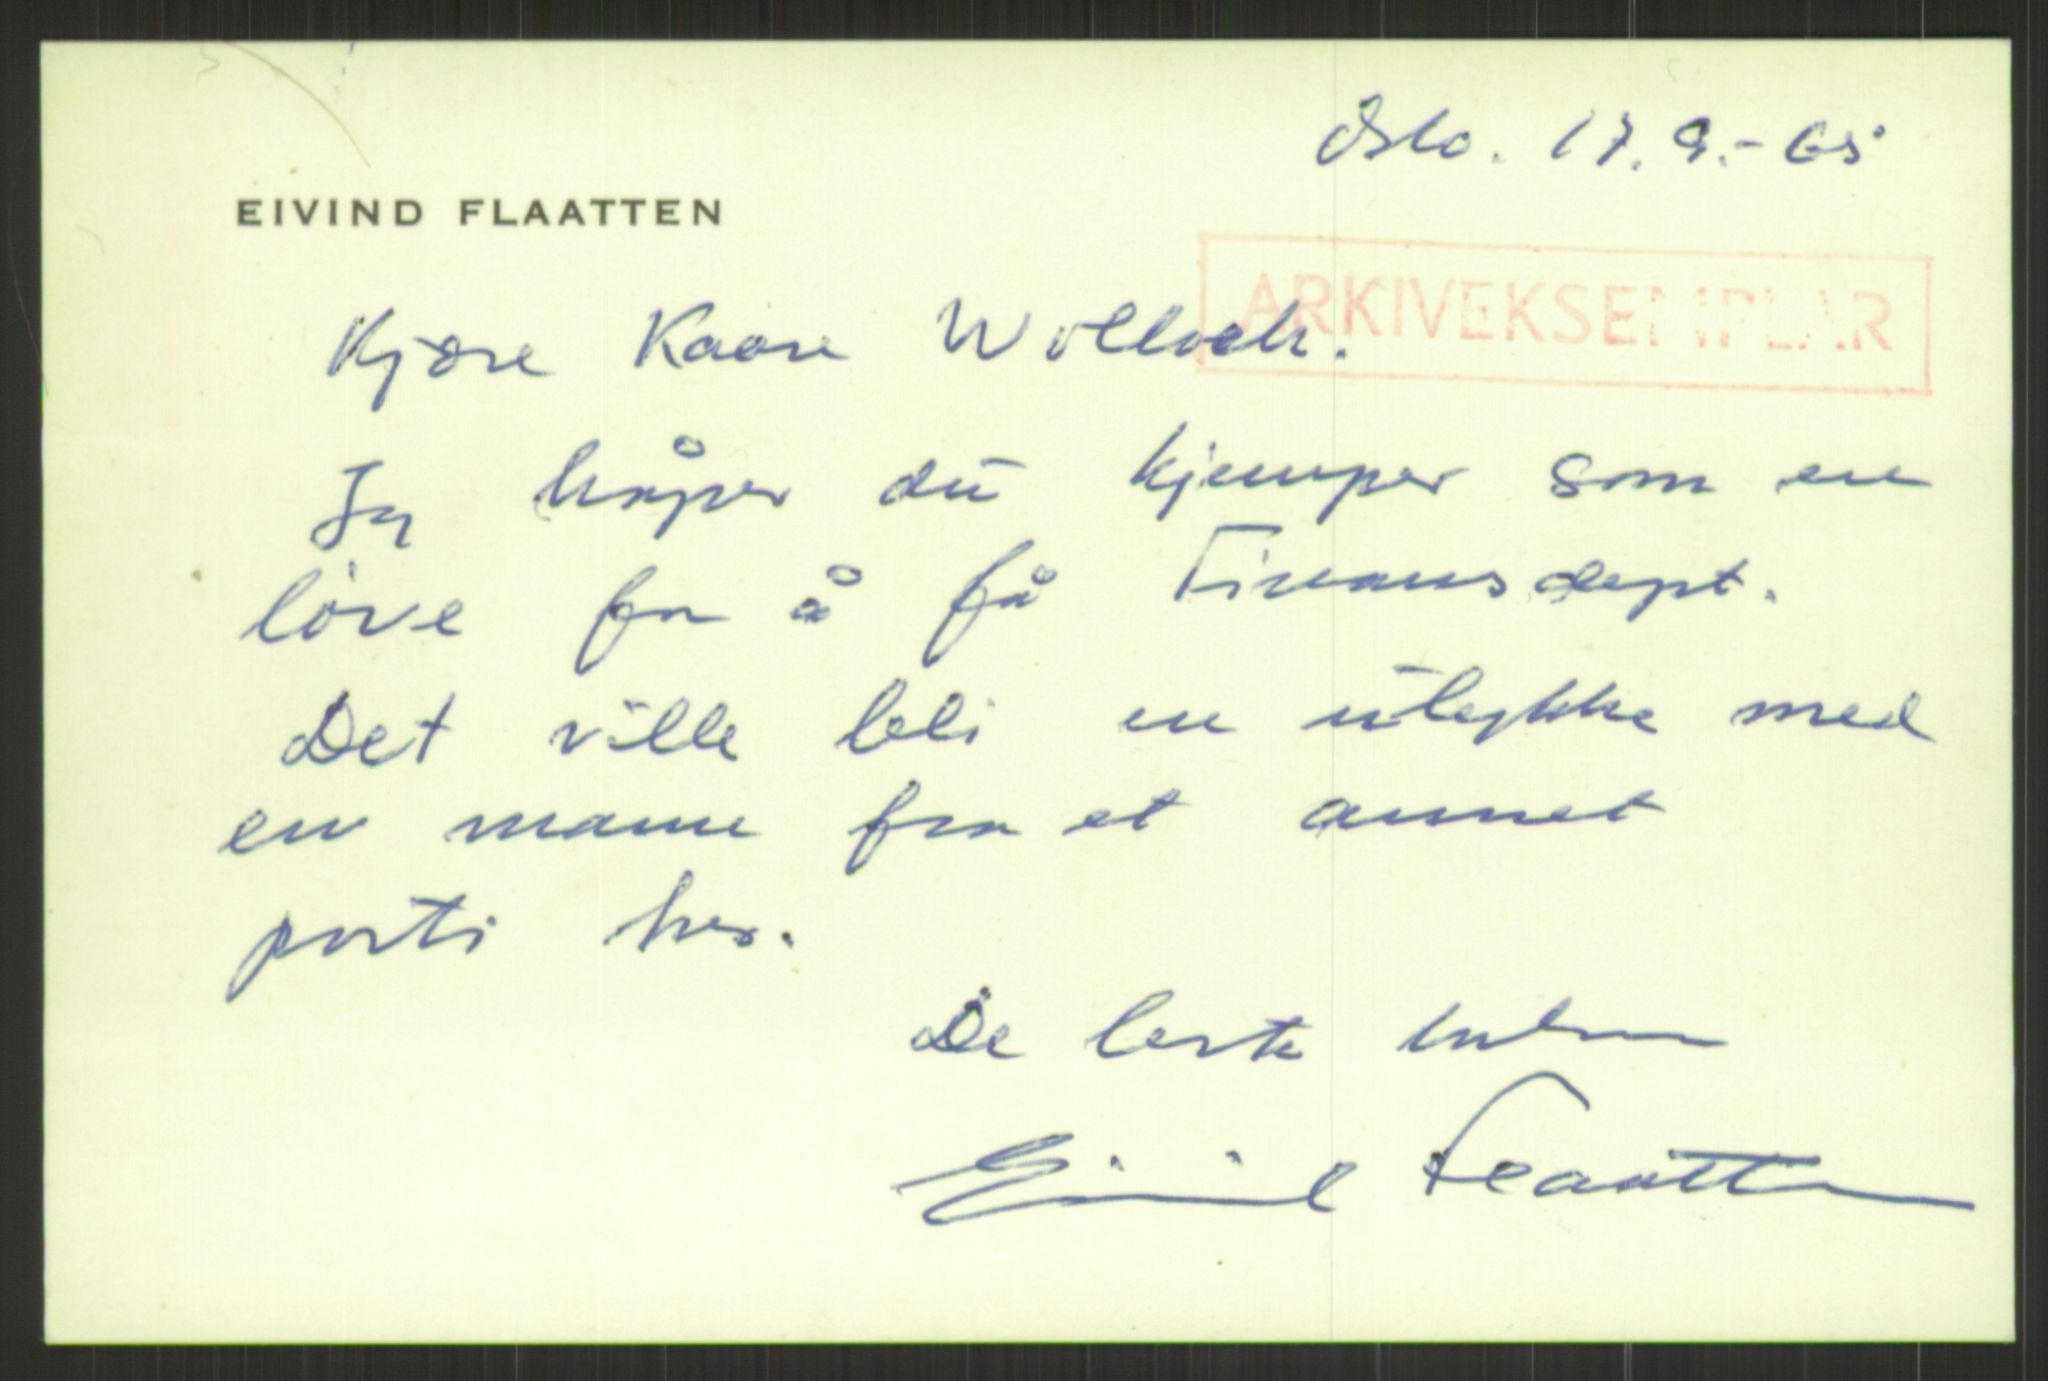 Oslo. 17.9.-65
EIVIND FLAATTEN
ARKIVEKSEMPLAR
Kjære Kaare Willoch.
Jeg håper du kjemper som en
løve for å få Finansdept.
Det ville bli en ulykke med
en mann fra et annet
parti her.
De beste
Eivind Flaatten